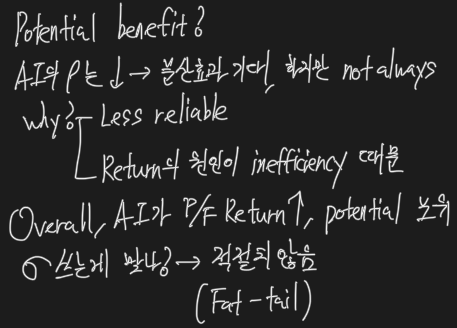 Potential benefit?
AI의 ρ는 ↓ → 분산효과 기대, 하지만 not always
why? Less reliable
Return의 원인이 inefficiency 때문
Overall, AI가 P/F Return↑, potential 보유
σ 쓰는게 맞나? → 적절치 않음
(Fat-tail)